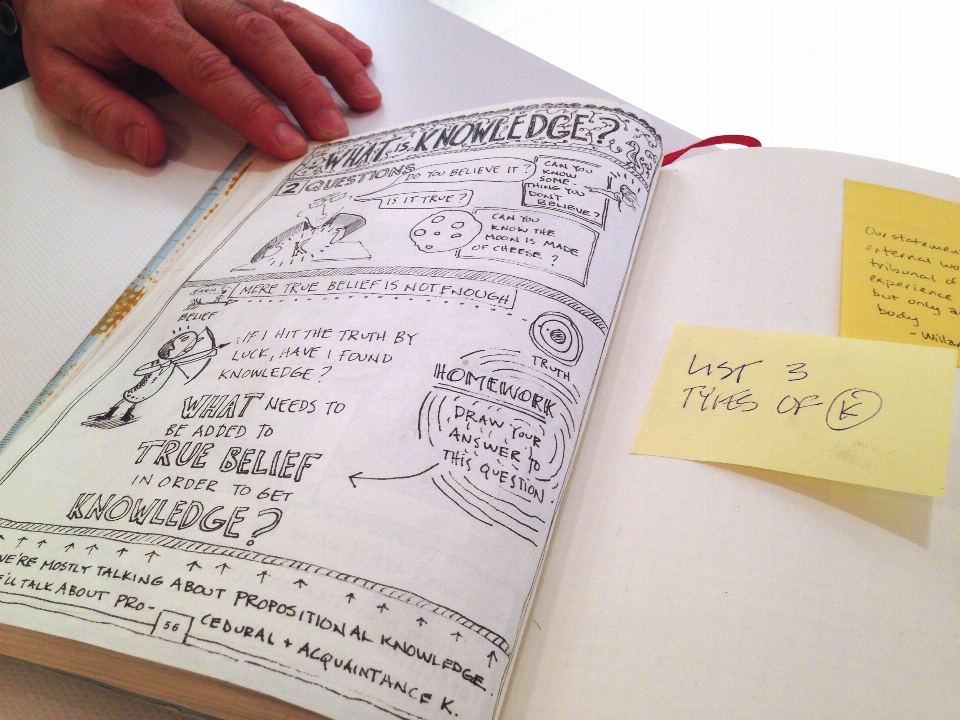 WHAT IS KNOWLEDGE?
2 QUESTIONS
DO YOU BELIEVE IT?
IS IT TRUE?
CAN YOU
KNOW
SOME-
THING YOU
DON'T
BELIEVE?
K
CAN YOU
KNOW THE
MOON IS MADE
OF CHEESE?
MERE TRUE BELIEF IS NOT ENOUGH
BELIEF
IF I HIT THE TRUTH BY
LUCK, HAVE I FOUND
KNOWLEDGE?
TRUTH
WHAT NEEDS TO
BE ADDED TO
TRUE BELIEF
IN ORDER TO GET
KNOWLEDGE?
HOMEWORK
DRAW YOUR
ANSWER TO
THIS QUESTION
WE'RE MOSTLY TALKING ABOUT PROPOSITIONAL KNOWLEDGE.
TALK ABOUT PRO-
CEDURAL + ACQUAINTANCE K.
56
LIST 3
TYPES OF K
Our statemen
external wo
tribunal of
experience
but only a
body
- Willar